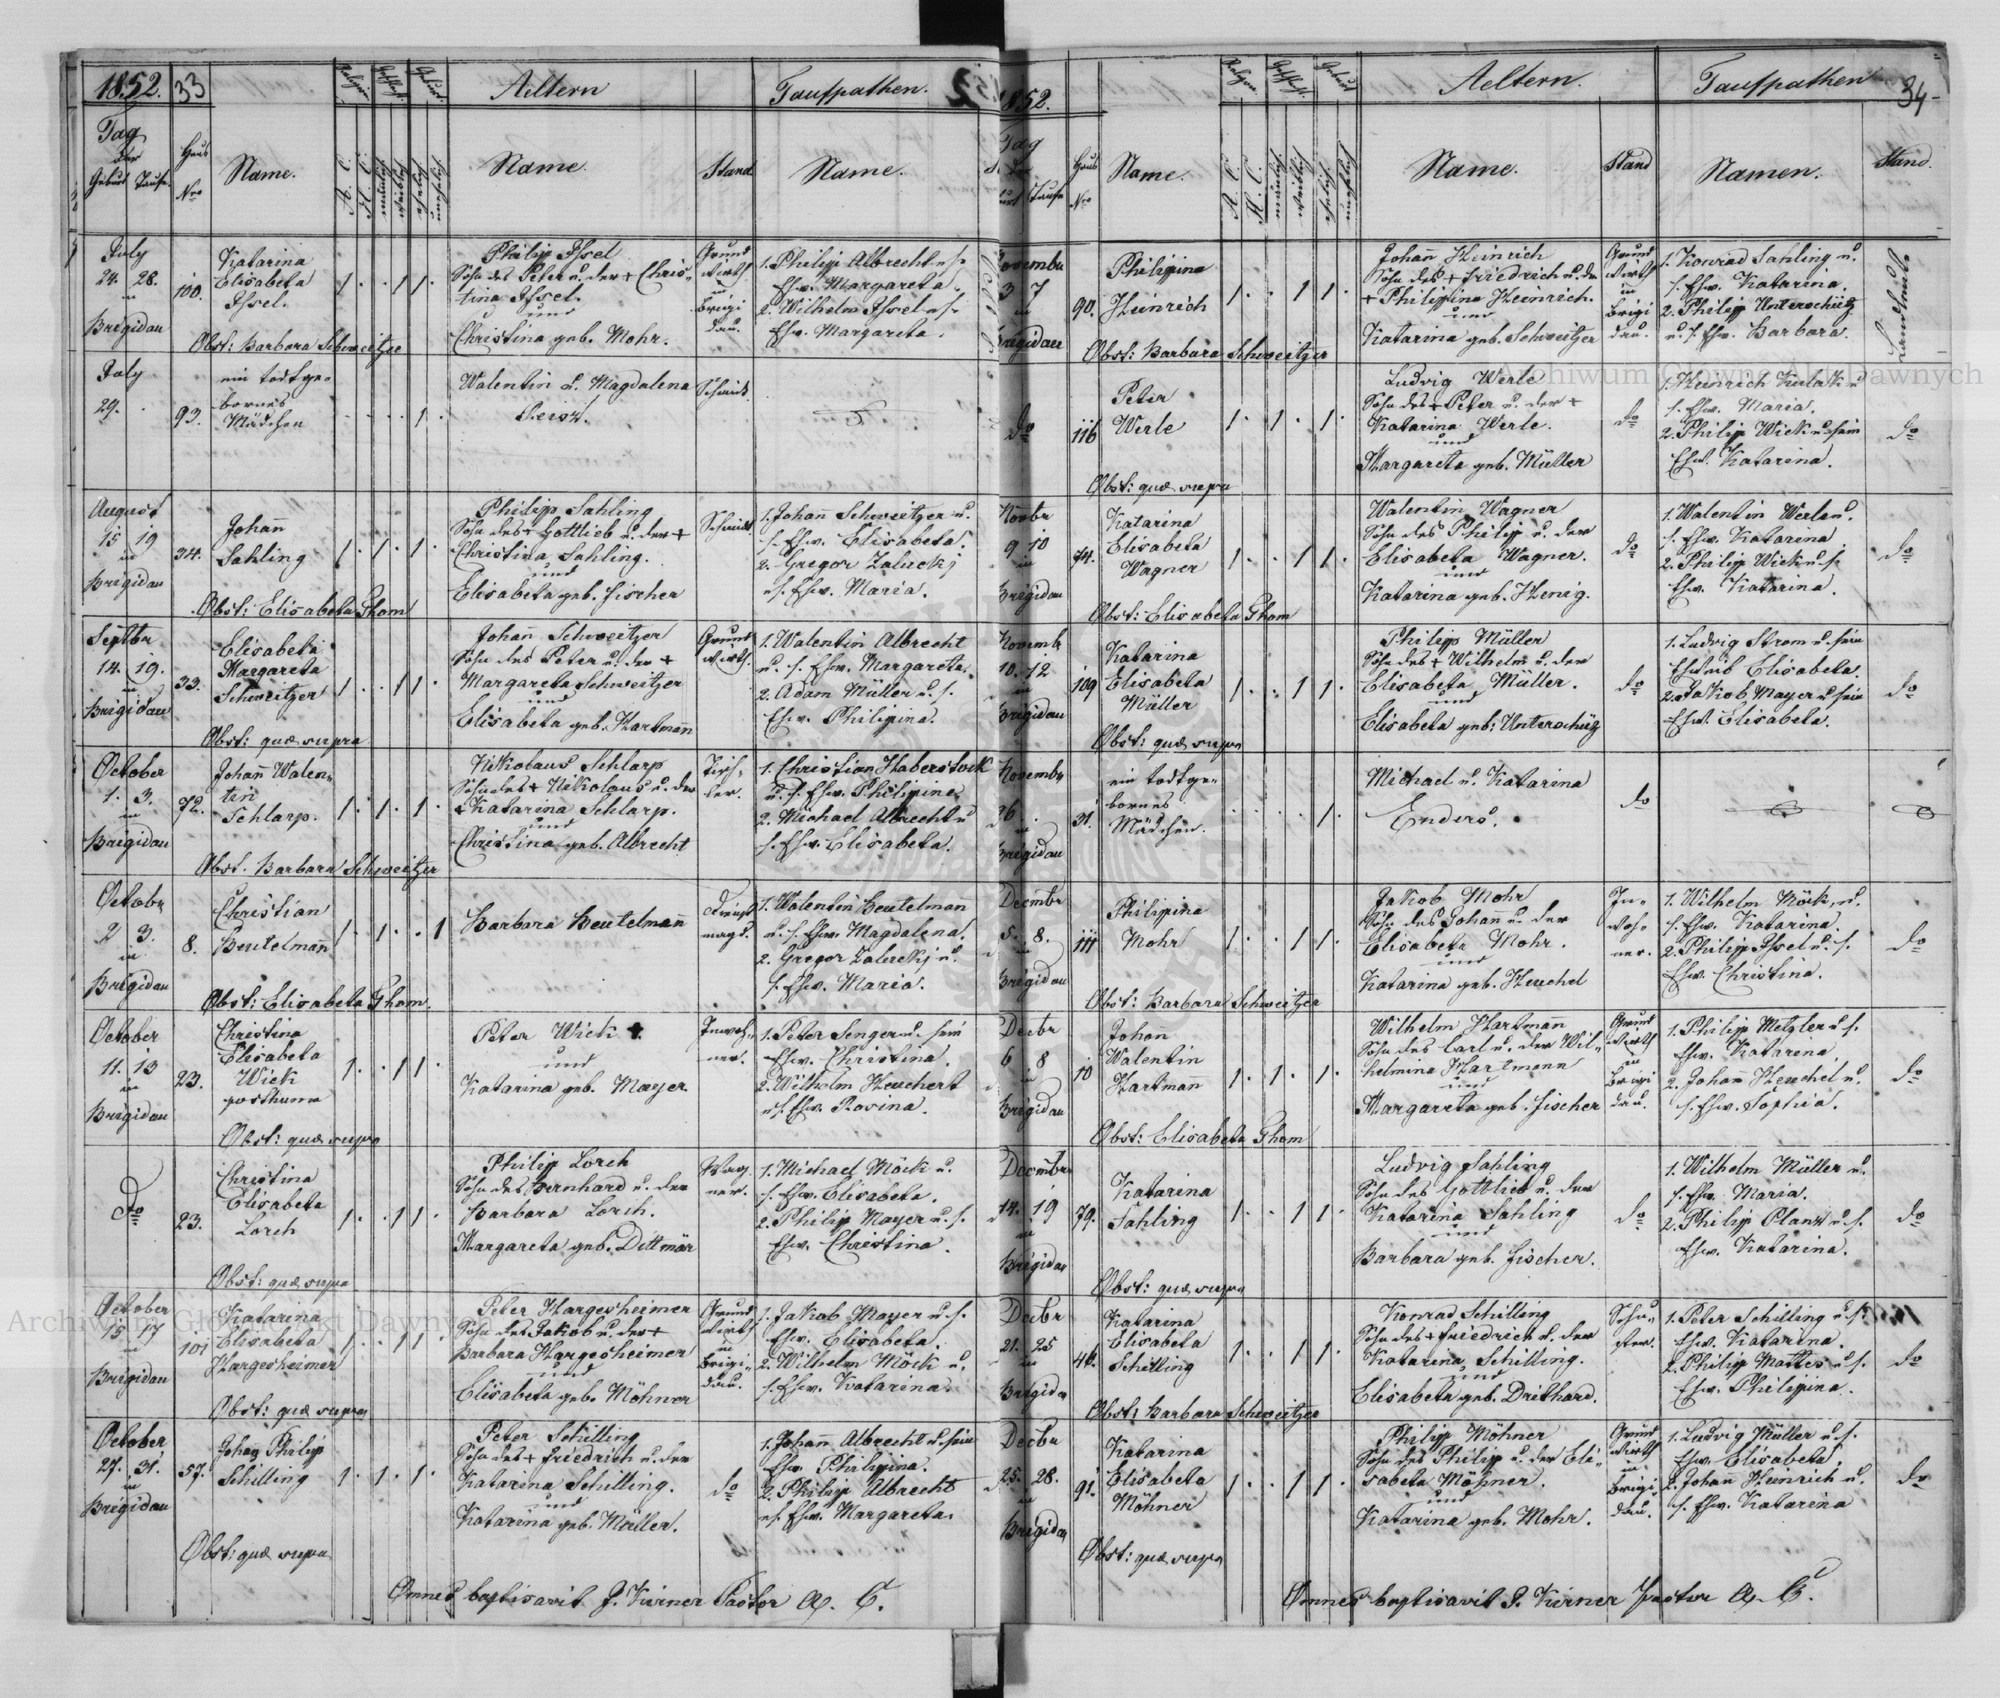 1852. 33
Religion. Geschl. Geburt.
Aeltern
Taufpathen.
Tag
der
Geburt Taufe.
Haus
Nro
Name.
A. C.
H. C.
männlich
weiblich
ehelich
unehelich
Name.
Stand
Name.
July
24. 28.
in
Brigidau
100.
Katarina
Elisabeta
Issel.
1. . . 1 1 .
Philipp Issel
Sohn des Peter u. der + Chris-
tina Issel.
und
Christina geb. Mohr.
Grund
wirth
in
Brigi
dau.
1. Philipp Albrecht u. s.
Ehw. Margareta.
2. Wilhelm Issel u. s.
Ehw. Margareta.
Obst: Barbara Schweitzer
July
29. .
93.
ein todtge-
bornes
Mädchen
Valentin u. Magdalena
Seisz.
Schmidt.
August
15 19
in
Brigidau
34.
Johann
Sahling
1. . 1 . 1 .
Philipp Sahling
Sohn des + Gottlieb u. der +
Christina Sahling.
und
Elisabeta geb. Fischer
Schmidt.
1. Johann Schweitzer u.
s. Ehw. Elisabeta.
2. Gregor Zaluckj
u. s. Ehw. Maria.
Obst: Elisabeta Thom
Septbr
14. 19.
in
Brigidau
33.
Elisabeta
Margareta
Schweitzer
1. . . 1 1 .
Johann Schweitzer
Sohn des Peter u. der +
Margareta Schweitzer
und
Elisabeta geb. Hartmann
Grund
wirth.
1. Valentin Albrecht
u. s. Ehw. Margareta.
2. Adam Müller u. s.
Ehw. Philipina.
Obst: quæ supra
October
1. 3.
in
Brigidau
72.
Johann Valen-
tin
Schlarp.
1. . 1 . 1 .
Nikolaus Schlarp
Sohn des + Nikolaus u. der
+ Katarina Schlarp.
und
Christina geb. Albrecht
Tisch-
ler.
1. Christian Haberstock
u. s. Ehw. Philipine.
2. Michael Albrecht u
s. Ehw. Elisabeta.
Obst. Barbara Schweitzer
Octobr
2 3.
in
Brigidau
8.
Christian
Beutelmann
1. . 1 . . 1
Barbara Beutelmann
Dienst
magd.
1. Valentin Beutelman
u. s. Ehw. Magdalena.
2. Gregor Zaluckj u.
s. Ehw. Maria.
Obst: Elisabeta Thom.
October
11. 13
in
Brigidau
23.
Christina
Elisabeta
Wick
posthuma
1. . . 1 1 .
Peter Wick +.
und
Katarina geb. Mayer.
Inwoh-
ner.
1. Peter Senger u. sein
Ehw. Christina.
2. Wilhelm Heuchert
u. s. Ehw. Rosina.
Obst: quæ supra
do
23.
Christina
Elisabeta
Lorch
1. . . 1 1 .
Philipp Lorch
Sohn des Bernhard u. der
Barbara Lorch.
Margareta geb. Dittmär
Wag
ner.
1. Michael Möck u.
s. Ehw. Elisabeta.
2. Philip Mayer u. s.
Ehw. Christina.
Obst: quæ supra
October
15 17
in
Brigidau
101
Katarina
Elisabeta
Hargesheimer
1. . . 1 1 .
Peter Hargesheimer
Sohn des Jakob u. der +
Barbara Hargesheimer
und
Elisabeta geb. Möhner
Grund
wirth
in
Brigi-
dau.
1. Jakob Mayer u. s.
Ehw. Elisabeta.
2. Wilhelm Möck u.
s. Ehw. Katarina.
Obst: quæ supra
October
27. 31.
in
Brigidau
57.
Johann Philip
Schilling
1. . 1 . 1 .
Peter Schilling
Sohn des + Friedrich u. der
Katarina Schilling.
und
Katarina geb. Müller.
do
1. Johann Albrecht u. sein
Ehw. Philippina.
2. Philipp Albrecht
u. s. Ehw. Margareta.
Obst: quæ supra
Omnes baptisavit J. Kirner Pastor A. C.
1852.
34
Religion. Geschl. Geburt
Aeltern.
Taufpathen
Tag
Taufe
Haus
Nro
Name.
A. C.
H. C.
männlich
weiblich
ehelich
unehelich
Name.
Stand
Namen.
Stand.
Novembr
3 7
in
Brigidau
90.
Philippina
Heinrich
1. . . 1 1 .
Johann Heinrich
Sohn des + Friedrich u. der
+ Philippina Heinrich.
und
Katarina geb. Schweitzer
Grund
wirth
in
Brigi
dau.
1. Konrad Sahling u.
s. Ehw. Katarina.
2. Philip Unterschütz
u. s. Ehw. Barbara.
Landleute
Obst: Barbara Schweitzer
do
116
Peter
Werle
1. . 1 . 1 .
Ludvig Werle
Sohn des + Peter u. der +
Katarina Werle.
und
Margareta geb. Müller
do
1. Heinrich Kulak u
s. Ehw. Maria.
2. Philip Wick u. sein
Ehw. Katarina.
do
Obst: quæ supra
Novbr
9 10
in
Brigidau
74.
Katarina
Elisabeta
Wagner
1. . . 1 1 .
Valentin Wagner
Sohn des Philip u. der
Elisabeta Wagner.
und
Katarina geb. Henig.
do
1. Valentin Werle u.
s. Ehw. Katarina
2. Philipp Wick u. s.
Ehw. Katarina.
do
Obst: Elisabeta Thom
Novembr
10. 12
in
Brigidau
109
Katarina
Elisabeta
Müller
1. . . 1 1 .
Philipp Müller
Sohn des + Wilhelm u. der
Elisabeta Müller.
und
Elisabeta geb: Unterschütz
do
1. Ludvig Strom u. sein
Ehweib Elisabeta.
2. Jakob Mayer u. sein
Ehw. Elisabeta.
do
Obst: quæ supra
Novembr
26 .
in
Brigidau
31.
ein todtge-
bornes
Mädchen.
Michael u. Katarina
Enders.
do
Decmbr
5. 8.
in
Brigidau
111
Philipina
Mohr
1. . . 1 1 .
Jakob Mohr
Sohn des Johann u. der
Elisabeta Mohr.
und
Katarina geb. Heuchel
In-
woh-
ner.
1. Wilhelm Möck, u.
s. Ehw. Katarina.
2. Philipp Issel u. s.
Ehw. Christina.
do
Obst: Barbara Schweitzer
Decbr
6 8
in
Brigidau
10
Johann
Valentin
Hartmann
1. . 1 . 1 .
Wilhelm Hartmann
Sohn des Carl u. der Wil-
helmina Hartmann
und
Margareta geb. Fischer
Grund
wirth
in
Brigi
dau.
1. Philip Metzler u. s.
Ehw. Katarina.
2. Johann Heuchel u.
s. Ehw. Sophia.
do
Obst: Elisabeta Thom
Decmbr
14. 19
in
Brigidau
79.
Katarina
Sahling
1. . . 1 1 .
Ludvig Sahling
Sohn des Gottlieb u. der
Katarina Sahling
und
Barbara geb. Fischer.
do
1. Wilhelm Müller u.
s. Ehw. Maria.
2. Philipp Planz u. s.
Ehw. Katarina.
do
Obst: quæ supra
Decbr
21. 25
in
Brigidau
46.
Katarina
Elisabeta
Schilling
1. . . 1 1 .
Konrad Schilling
Sohn des + Friedrich u. der
Katarina Schilling.
und
Elisabeta geb. Drithard.
Schu-
ster.
1. Peter Schilling u. s.
Ehw. Katarina.
2. Philip Mattes u. s.
Ehw. Philippina.
do
Obst: Barbara Schweitzer
Decbr
25. 28.
in
Brigidau
91.
Katarina
Elisabeta
Möhner
1. . . 1 1 .
Philipp Möhner
Sohn des Philip u. der Eli-
sabeta Möhner.
und
Katarina geb. Mohr.
Grund
wirth
in
Brigi-
dau.
1. Ludvig Müller u. s.
Ehw. Elisabeta.
2. Johan Heinrich u.
s. Ehw. Katarina
do
Obst: quæ supra
Omnes baptisavit J. Kirner Pastor A. C.
Archiwum Główne Akt Dawnych
Archiwum Główne Akt Dawnych